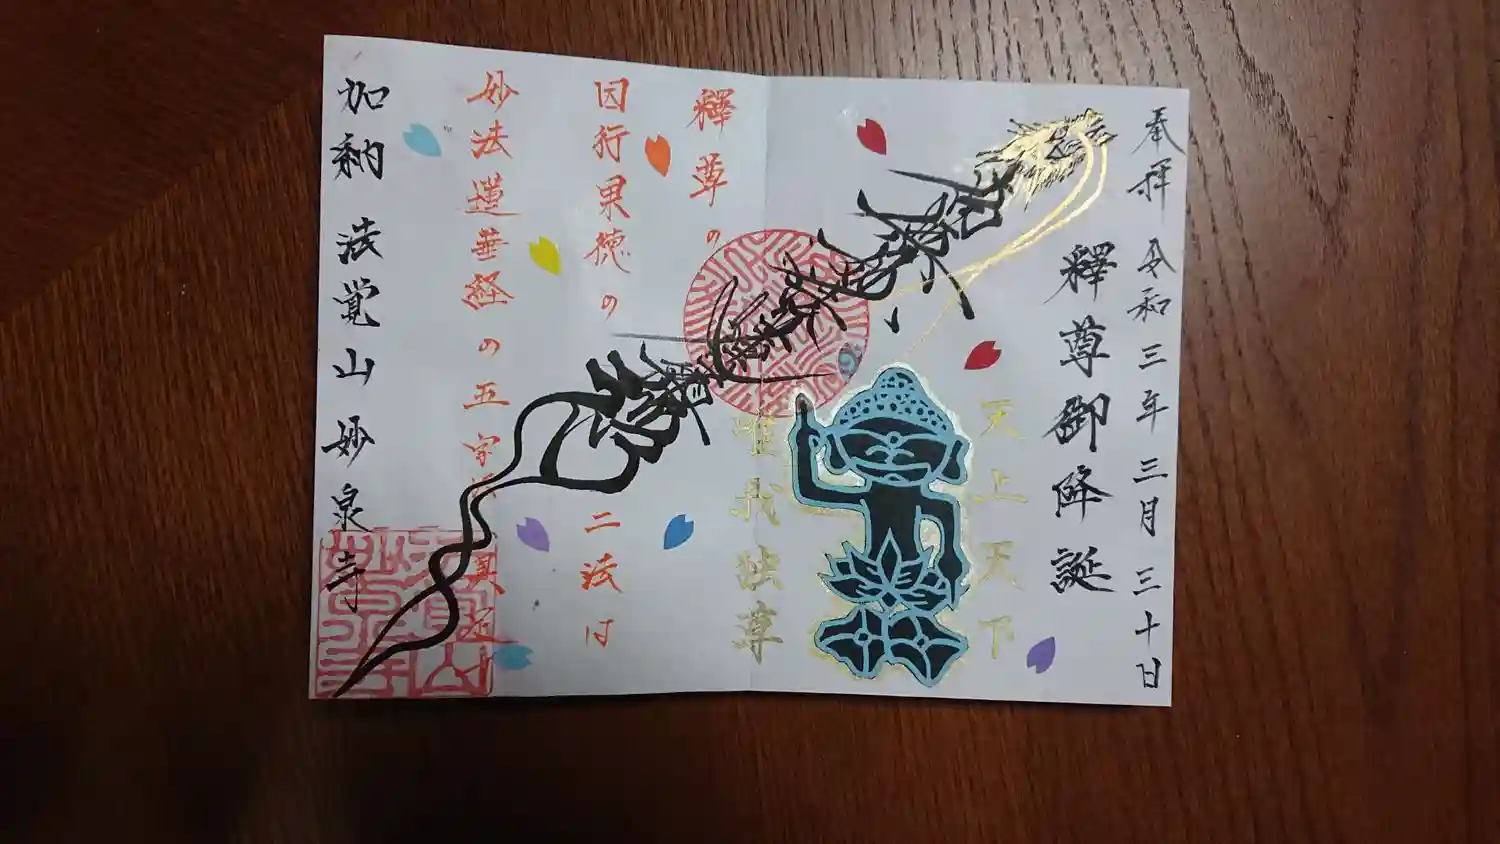 奉拝 令和三年三月三十日
釋尊御降誕
天上天下
唯我独尊
釋尊の
因行果徳の二法は
妙法蓮華経の五字に具足
加納 法覚山 妙泉寺